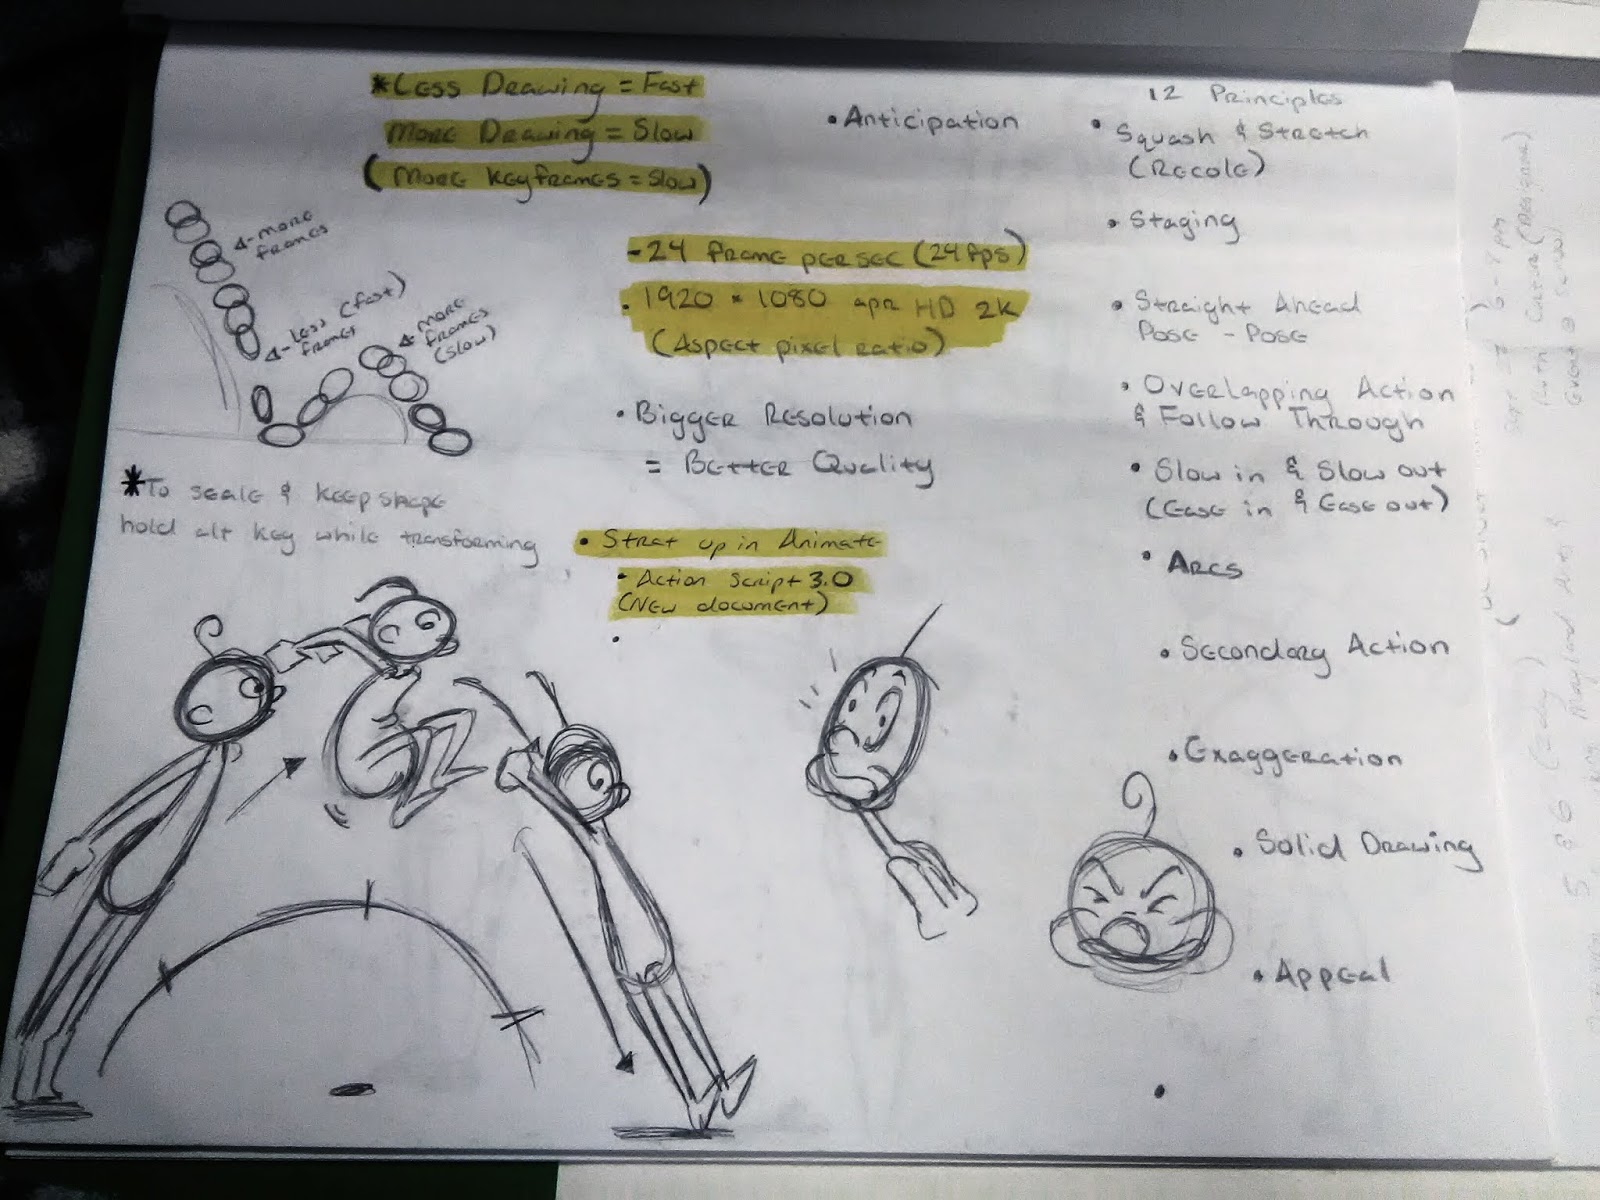 *Less Drawing = Fast
More Drawing = Slow
(More Keyframes = Slow)
more frames
Less (fast) frames
more frames (slow)
*To scale & keep shape
hold alt key while transforming
• Anticipation
- 24 frame per sec (24fps)
• 1920 * 1080 apr HD 2K
(Aspect pixel ratio)
• Bigger Resolution
= Better Quality
• Strat up in Animate
• Action Script 3.0
(New document)
12 Principles
• Squash & Stretch
(Recole)
• Staging
• Straight Ahead
Pose - Pose
• Overlapping Action
& Follow Through
• Slow in & Slow out
(Ease in & Ease out)
• Arcs
• Secondary Action
• Exaggeration
• Solid Drawing
• Appeal